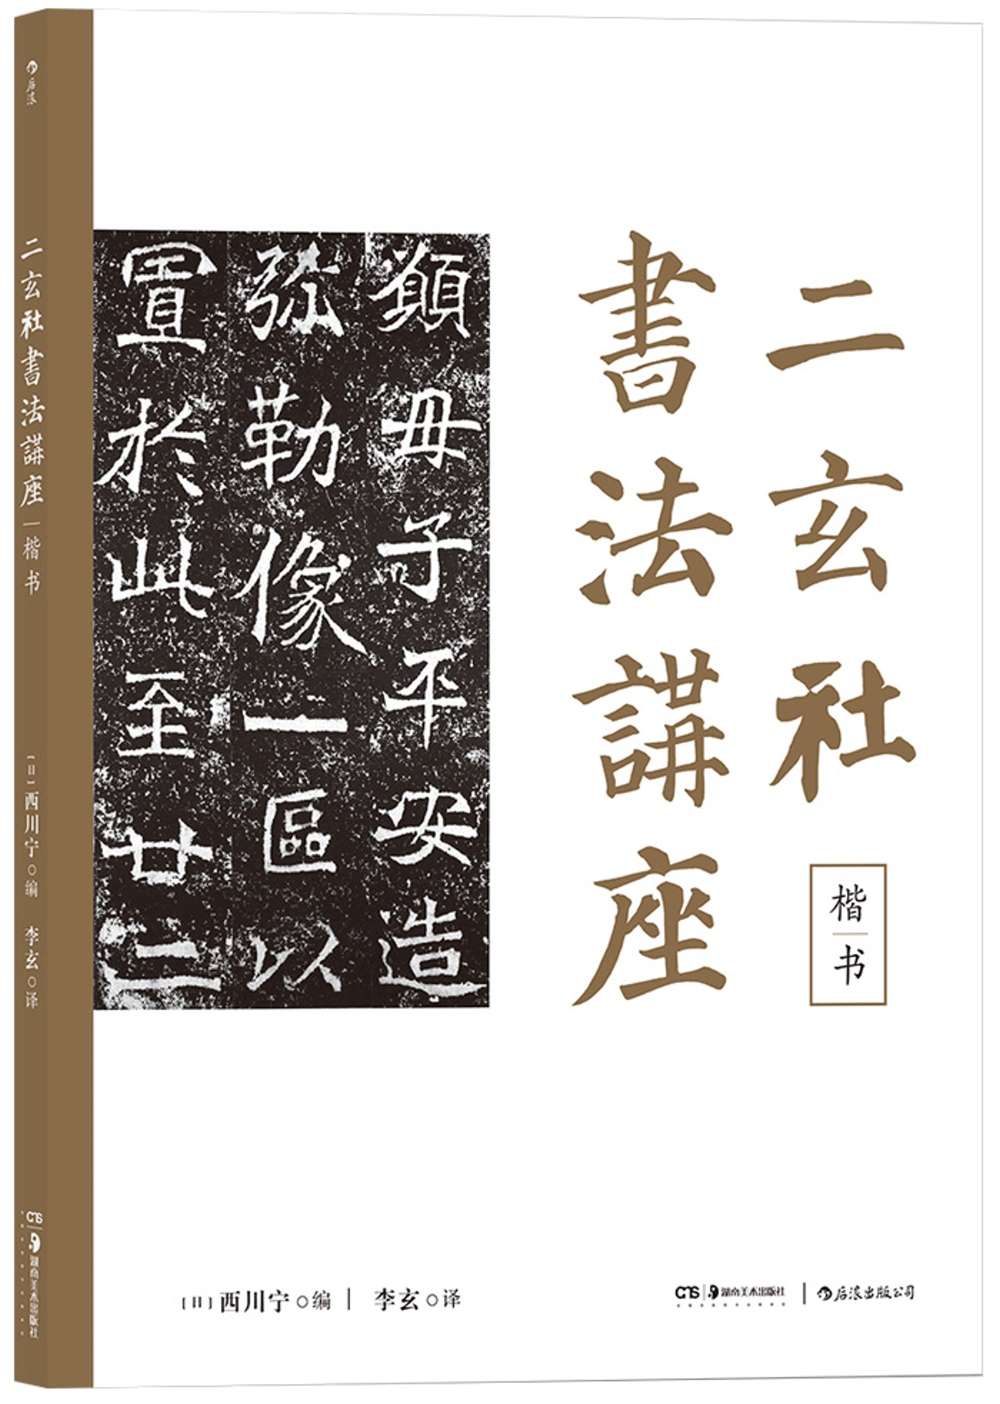 后浪
二玄社書法講座｜楷书
[日]西川宁○编 李玄○译
CNS
湖南美术出版社
二玄社
書法講座
楷书
願母子平安造
弥勒像一區以
置於此至廿二
[日]西川宁○编｜李玄○译
CNS 湖南美术出版社｜后浪出版公司